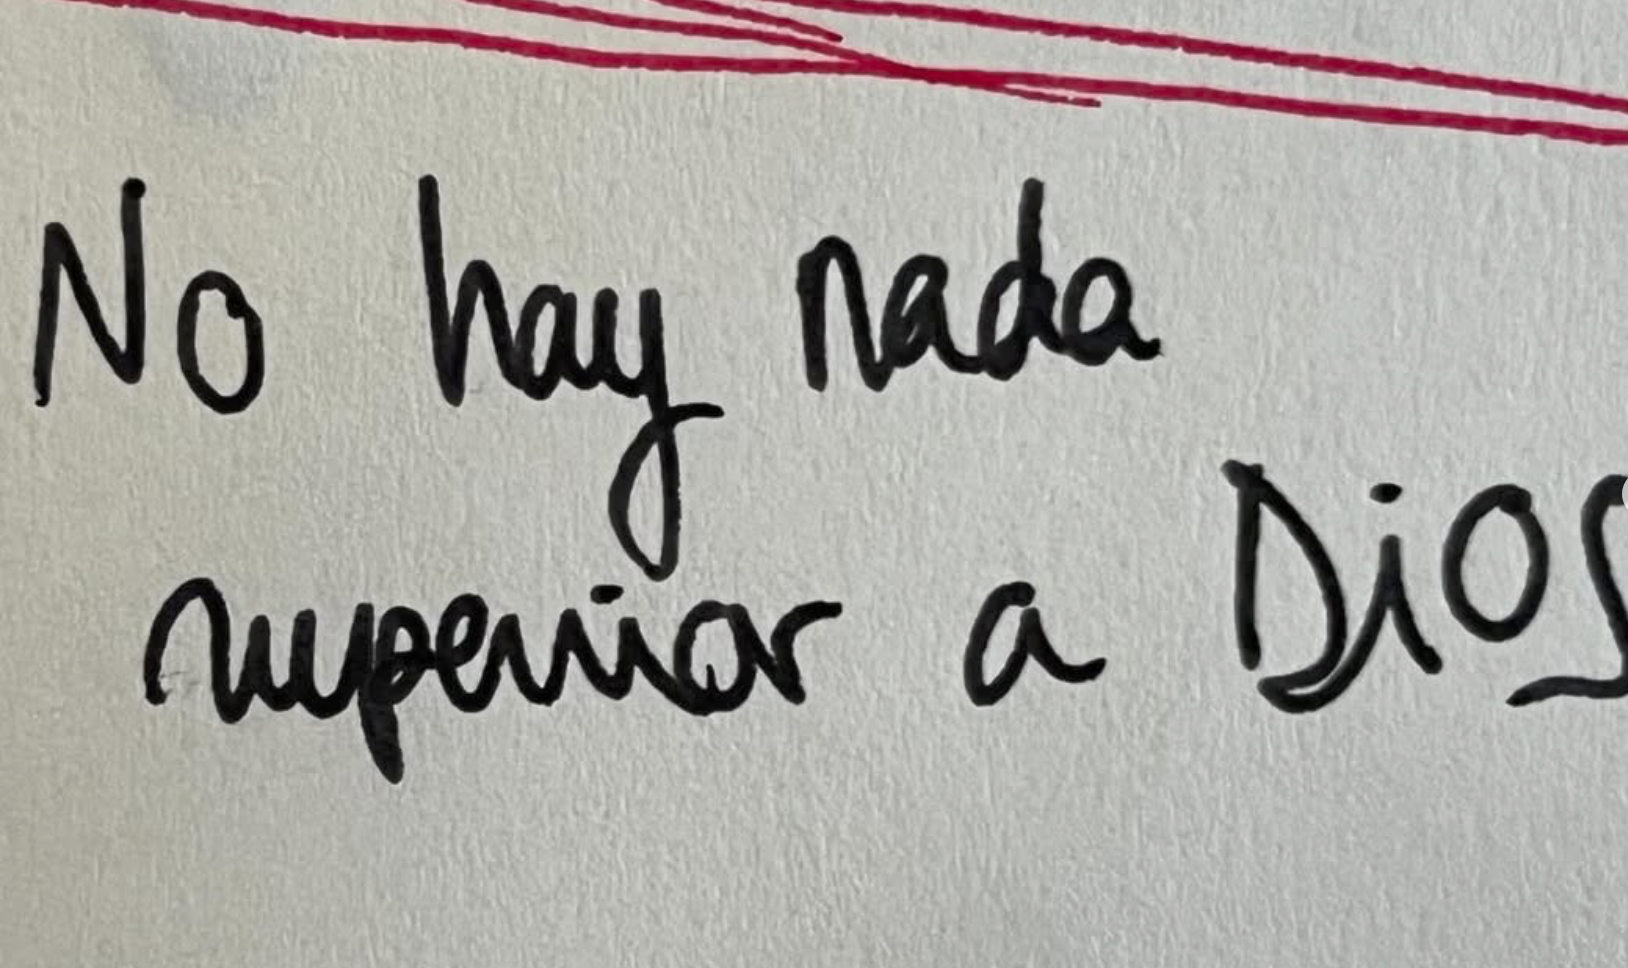 No hay nada
superior a Dios